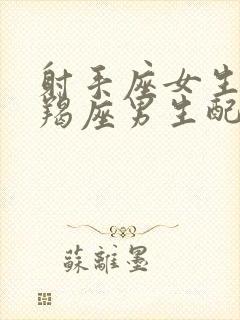 射手座女生
羯座男生配
蘇離墨